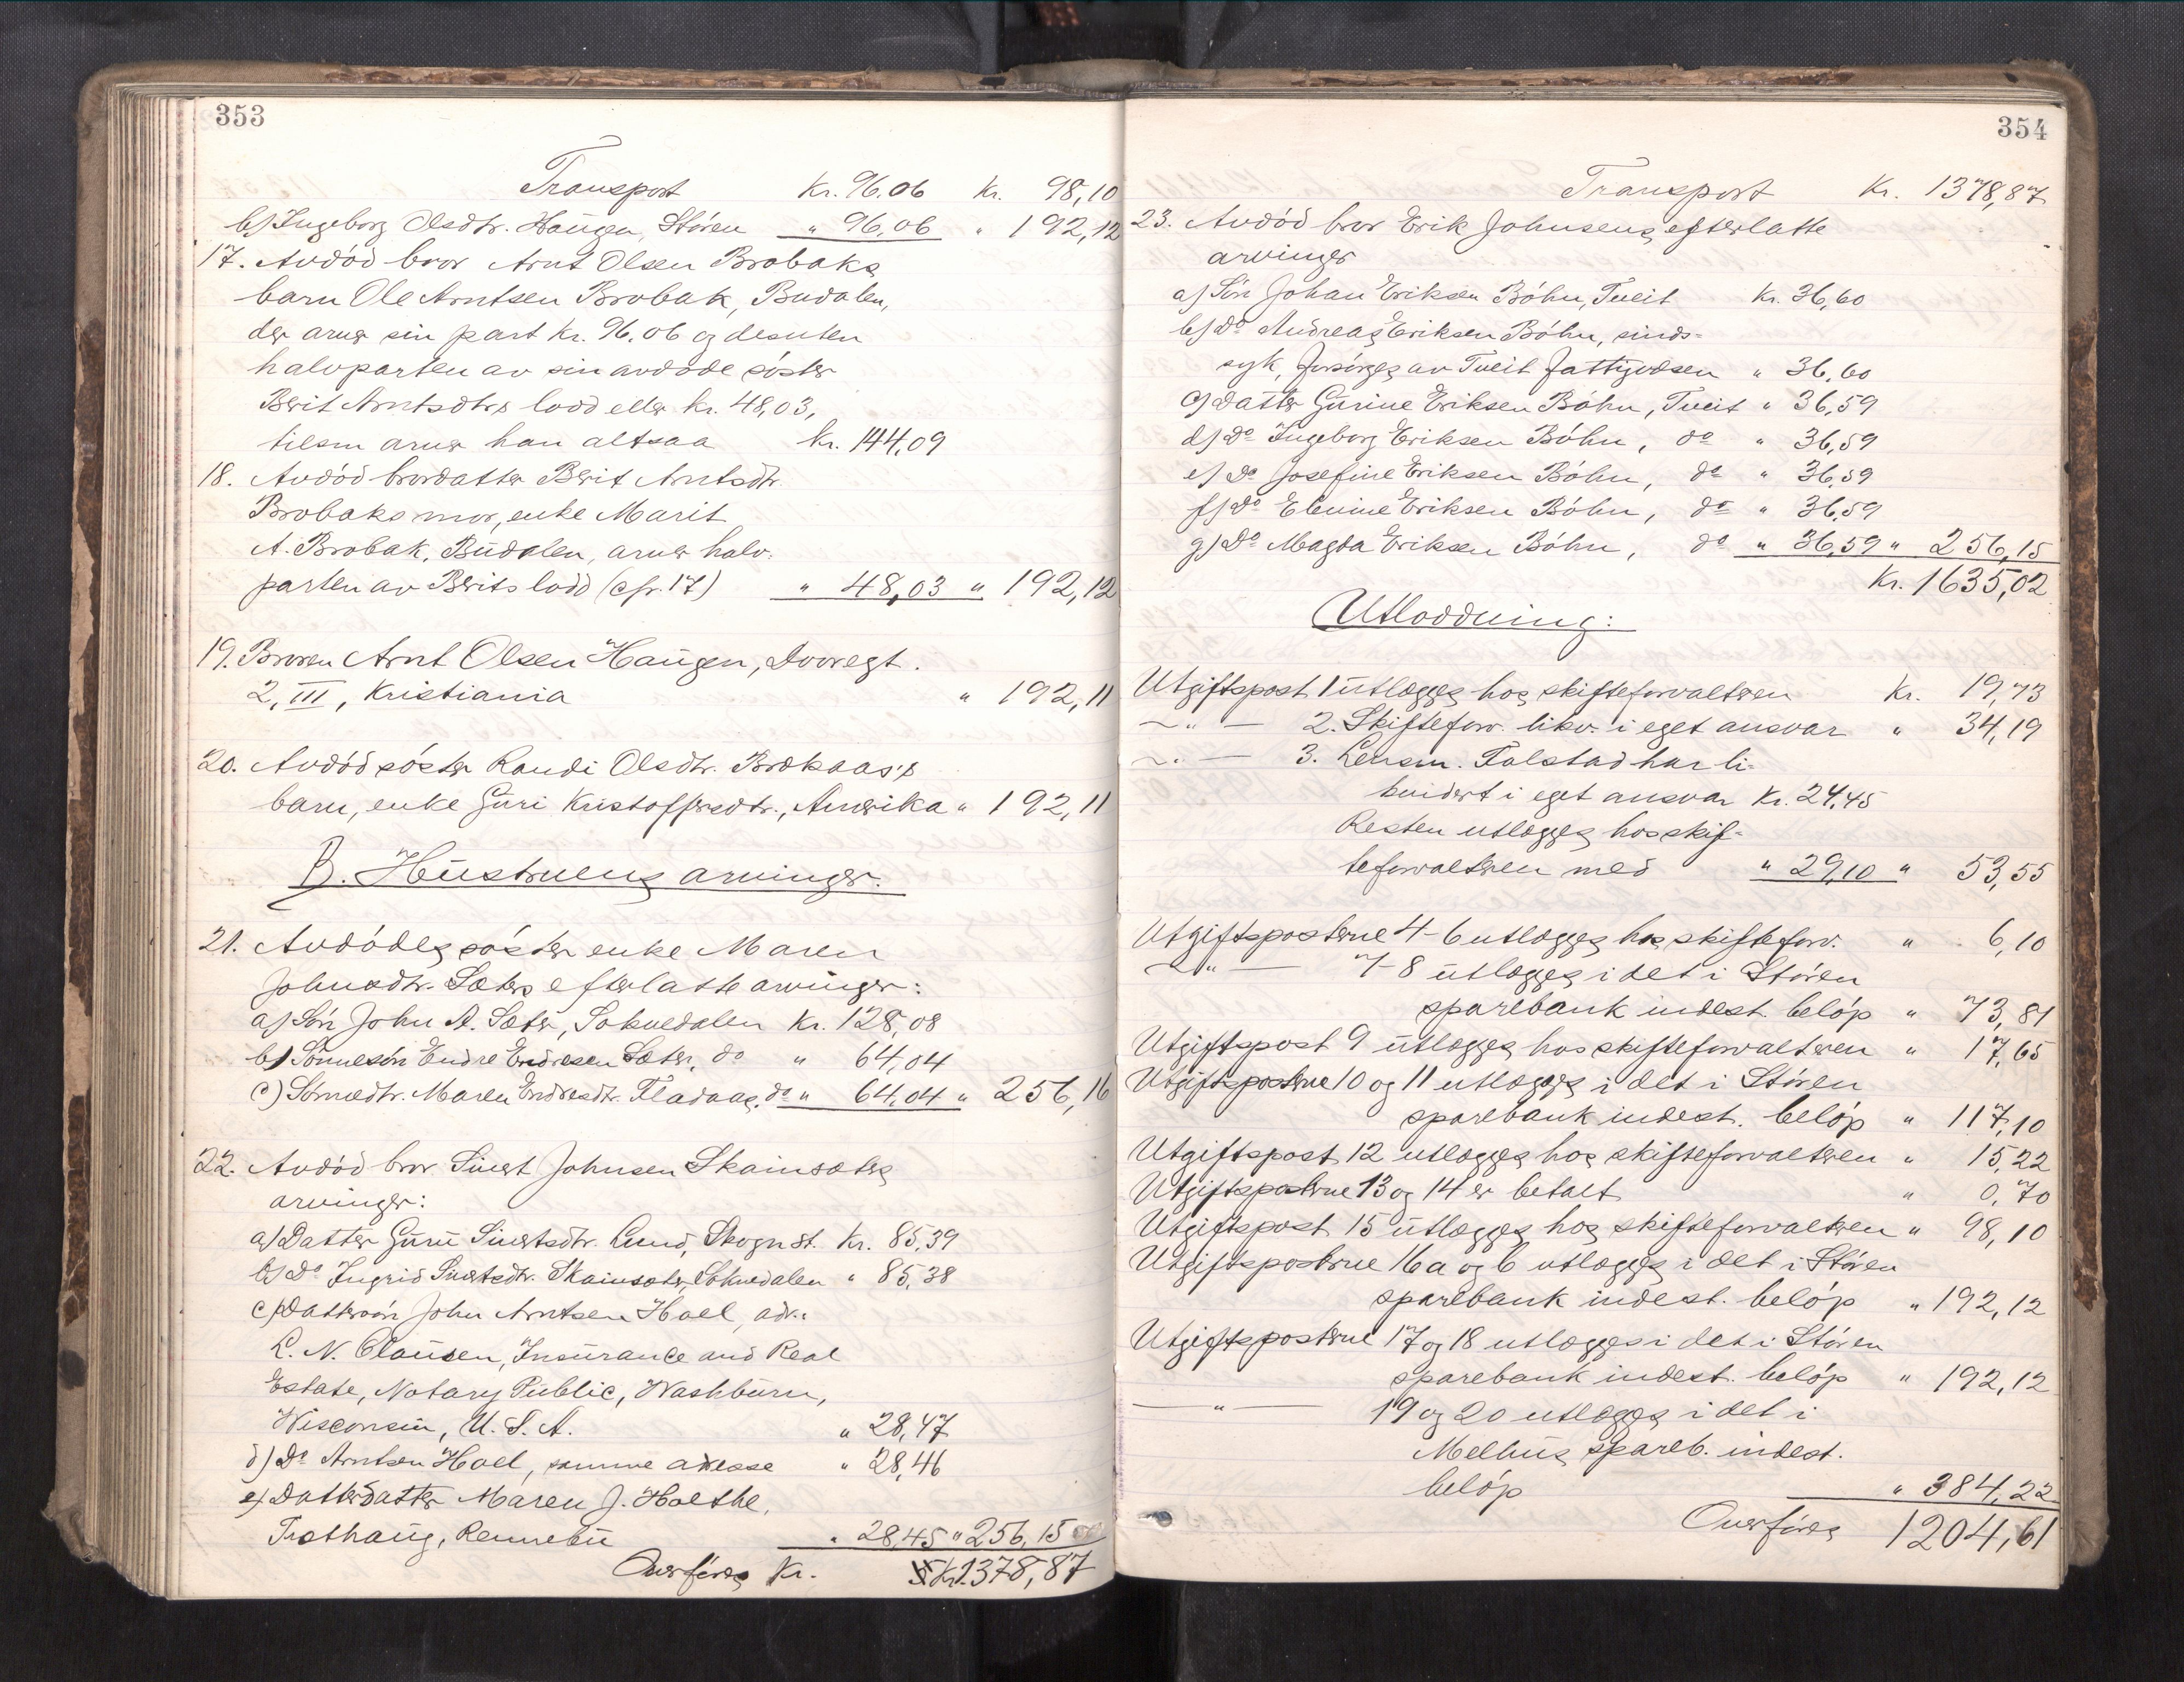 353
Transport Kr. 96.06 Kr. 98,10
b) Ingeborg Olsdtr. Haugen, Stören " 96,06 " 192,12
17. Avdöd bror Arnt Olsen Brobaks
barn Ole Arntsen Brobak, Budalen,
der arver sin part Kr. 96.06 og desuten
halvparten av sin avdöde söster
Berit Arntsdtrs lodd eller kr. 48,03,
tilsm arver han altsaa kr. 144,09
18. Avdöd brordatter Berit Arntsdtr.
Brobaks mor, enke Marit
A. Brobak, Budalen, arver halv-
parten av Berits lodd (cfr. 17) " 48,03 " 192,12
19. Broren Arnt Olsen Haugen, Dovregt.
2, III, Kristiania " 192,11
20. Avdöd söster Randi Olsdtr. Brækaas's
barn, enke Guri Kristoffersdtr., Amerika " 192,11
B. Hustruens arvinger.
21. Avdödes söster enke Maren
Johnsdtr. Sæters efterlatte arvinger:
a) Sön John A. Sæter, Soknedalen Kr. 128,08
b) Sönnesön Endre Endresen Sæter, do " 64,04
c) Sönnedtr. Maren Endresdtr. Fladaas, do " 64,04 " 256,16
22. Avdöd bror Sivert Johnsen Skainsæters
arvinger:
a) Datter Guru Sivertsdtr. Lund, Skogn st. Kr. 85,39
b) Do Ingrid Sivertsdtr. Skainsæter, Soknedalen " 85,38
c) Dattersön John Arntsen Hoel, adr.:
L. N. Clausen, Insurance and Real
Estate, Notary Public, Washburn,
Wisconsin, U. S. A. " 28,47
d) Do Arntsen Hoel, samme adresse " 28,46
e) Datterdatter Maren J. Holthe,
Trothaug, Rennebu " 28,45 " 256,15
Overföres Kr. Kr. 1378,87
354
Transport Kr. 1378,87
23. Avdöd bror Erik Johnsens efterlatte
arvinger
a) Sön Johan Eriksen Böhn, Tveit Kr. 36,60
b) Do Andreas Eriksen Böhn, sinds-
syk, forsörges av Tveit fattigvæsen " 36,60
c) Datter Gurine Eriksen Böhn, Tveit " 36,59
d) Do Ingeborg Eriksen Böhn, do " 36,59
e) Do Josefine Eriksen Böhn, do " 36,59
f) Do Elenine Eriksen Böhn, do " 36,59
g) Do Magda Eriksen Böhn, do " 36,59 " 256,15
Kr. 1635,02
Utlodding:
Utgiftspost 1 utlægges hos skifteforvalteren Kr. 19,73
— " — 2. Skifteforv. likv. i eget ansvar " 34,19
— " — 3. Lensm. Folstad har li-
kvidert i eget ansvar Kr. 24,45
Resten utlægges hos skif-
teforvalteren med " 29,10 " 53,55
Utgiftsposterne 4-6 utlægges hos skifteforv. " 6,10
— " — 7-8 utlægges i det i Stören
sparebank indest. belöp " 73,81
Utgiftspost 9 utlægges hos skifteforvalteren " 17,65
Utgiftsposterne 10 og 11 utlægges i det i Stören
sparebank indest. belöp " 117,10
Utgiftspost 12 utlægges hos skifteforvalteren " 15,22
Utgiftsposterne 13 og 14 er betalt " 0,70
Utgiftspost 15 utlægges hos skifteforvalteren " 98,10
Utgiftsposterne 16 a og b utlægges i det i Stören
sparebank indest. belöp " 192,12
Utgiftsposterne 17 og 18 utlægges i det i Stören
sparebank indest. belöp " 192,12
— " — 19 og 20 utlægges i det i
Melhus spareb. indest.
belöp " 384,22
Overföres 1204,61